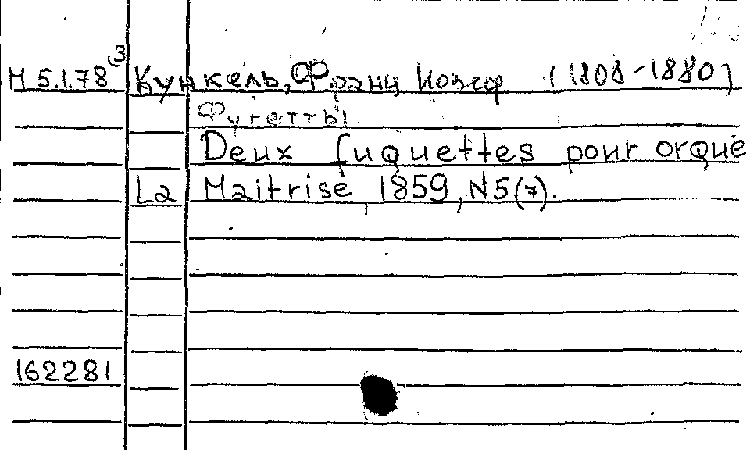 М 5.1.78 (3) Кункель, Франц Иозеф (1808-1880)
Фугетты
Deux fuquettes pour orque
La Maitrise, 1859, N5(7).
162281